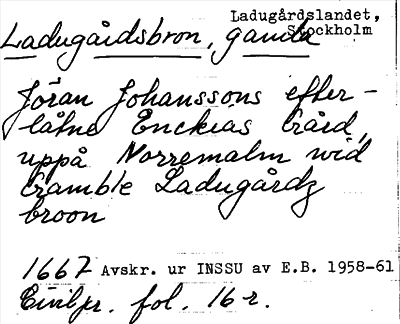 Ladugårdslandet,
Stockholm
Ladugårdsbron, gamla
Jöran Johanssons effter-
låtne Enckias Gård,
uppå Norremalm wid
Gramble Ladugårdz
broon
1667 Avskr. ur INSSU av E.B. 1958-61
Civilpr. fol. 16 r.